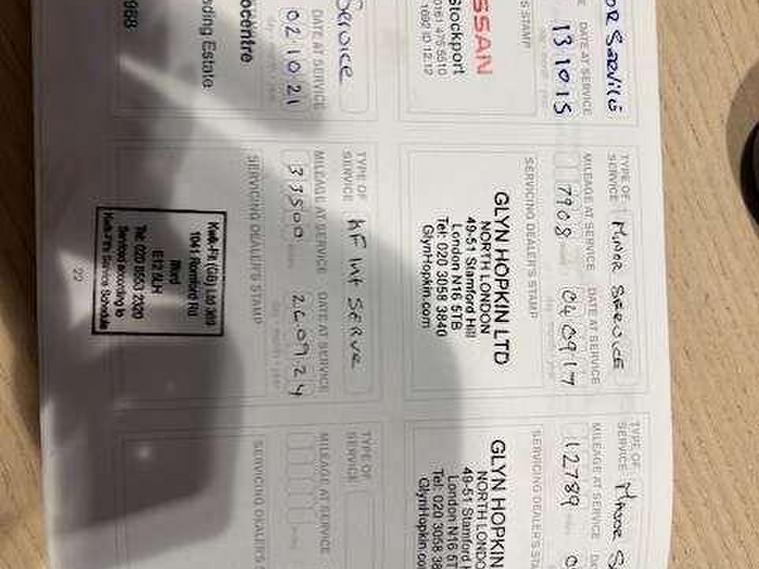 OR SERVICE
DATE AT SERVICE
13 10 15
S STAMP
SSAN
Stockport
0161 475 5510
1692 ID 12.12
TYPE OF SERVICE
MINOR SERVICE
MILEAGE AT SERVICE
DATE AT SERVICE
7908
04 09 17
SERVICING DEALER'S STAMP
GLYN HOPKIN LTD
NORTH LONDON
49-51 Stamford Hill
London N16 5TB
Tel: 020 3058 3840
GlynHopkin.com
TYPE OF SERVICE
MINOR S
MILEAGE AT SERVICE
12789
SERVICING DEALER'S STA
GLYN HOPKIN
NORTH LONDO
49-51 Stamford H
London N16 5T
Tel: 020 3058 38
GlynHopkin.co
Service
DATE AT SERVICE
02 10 21
ocentre
ding Estate
968
TYPE OF SERVICE
KF Int SERVE
MILEAGE AT SERVICE
DATE AT SERVICE
33500
26 09 24
SERVICING DEALER'S STAMP
Kwik-Fit (GB) Ltd
1041 Romford Rd
Ilford
E12 5LH
Tel: 020 8553 2920
Serviced according to
Kwik-Fit's Service Schedule
22
TYPE OF SERVICE
MILEAGE AT SERVICE
SERVICING DEALER'S